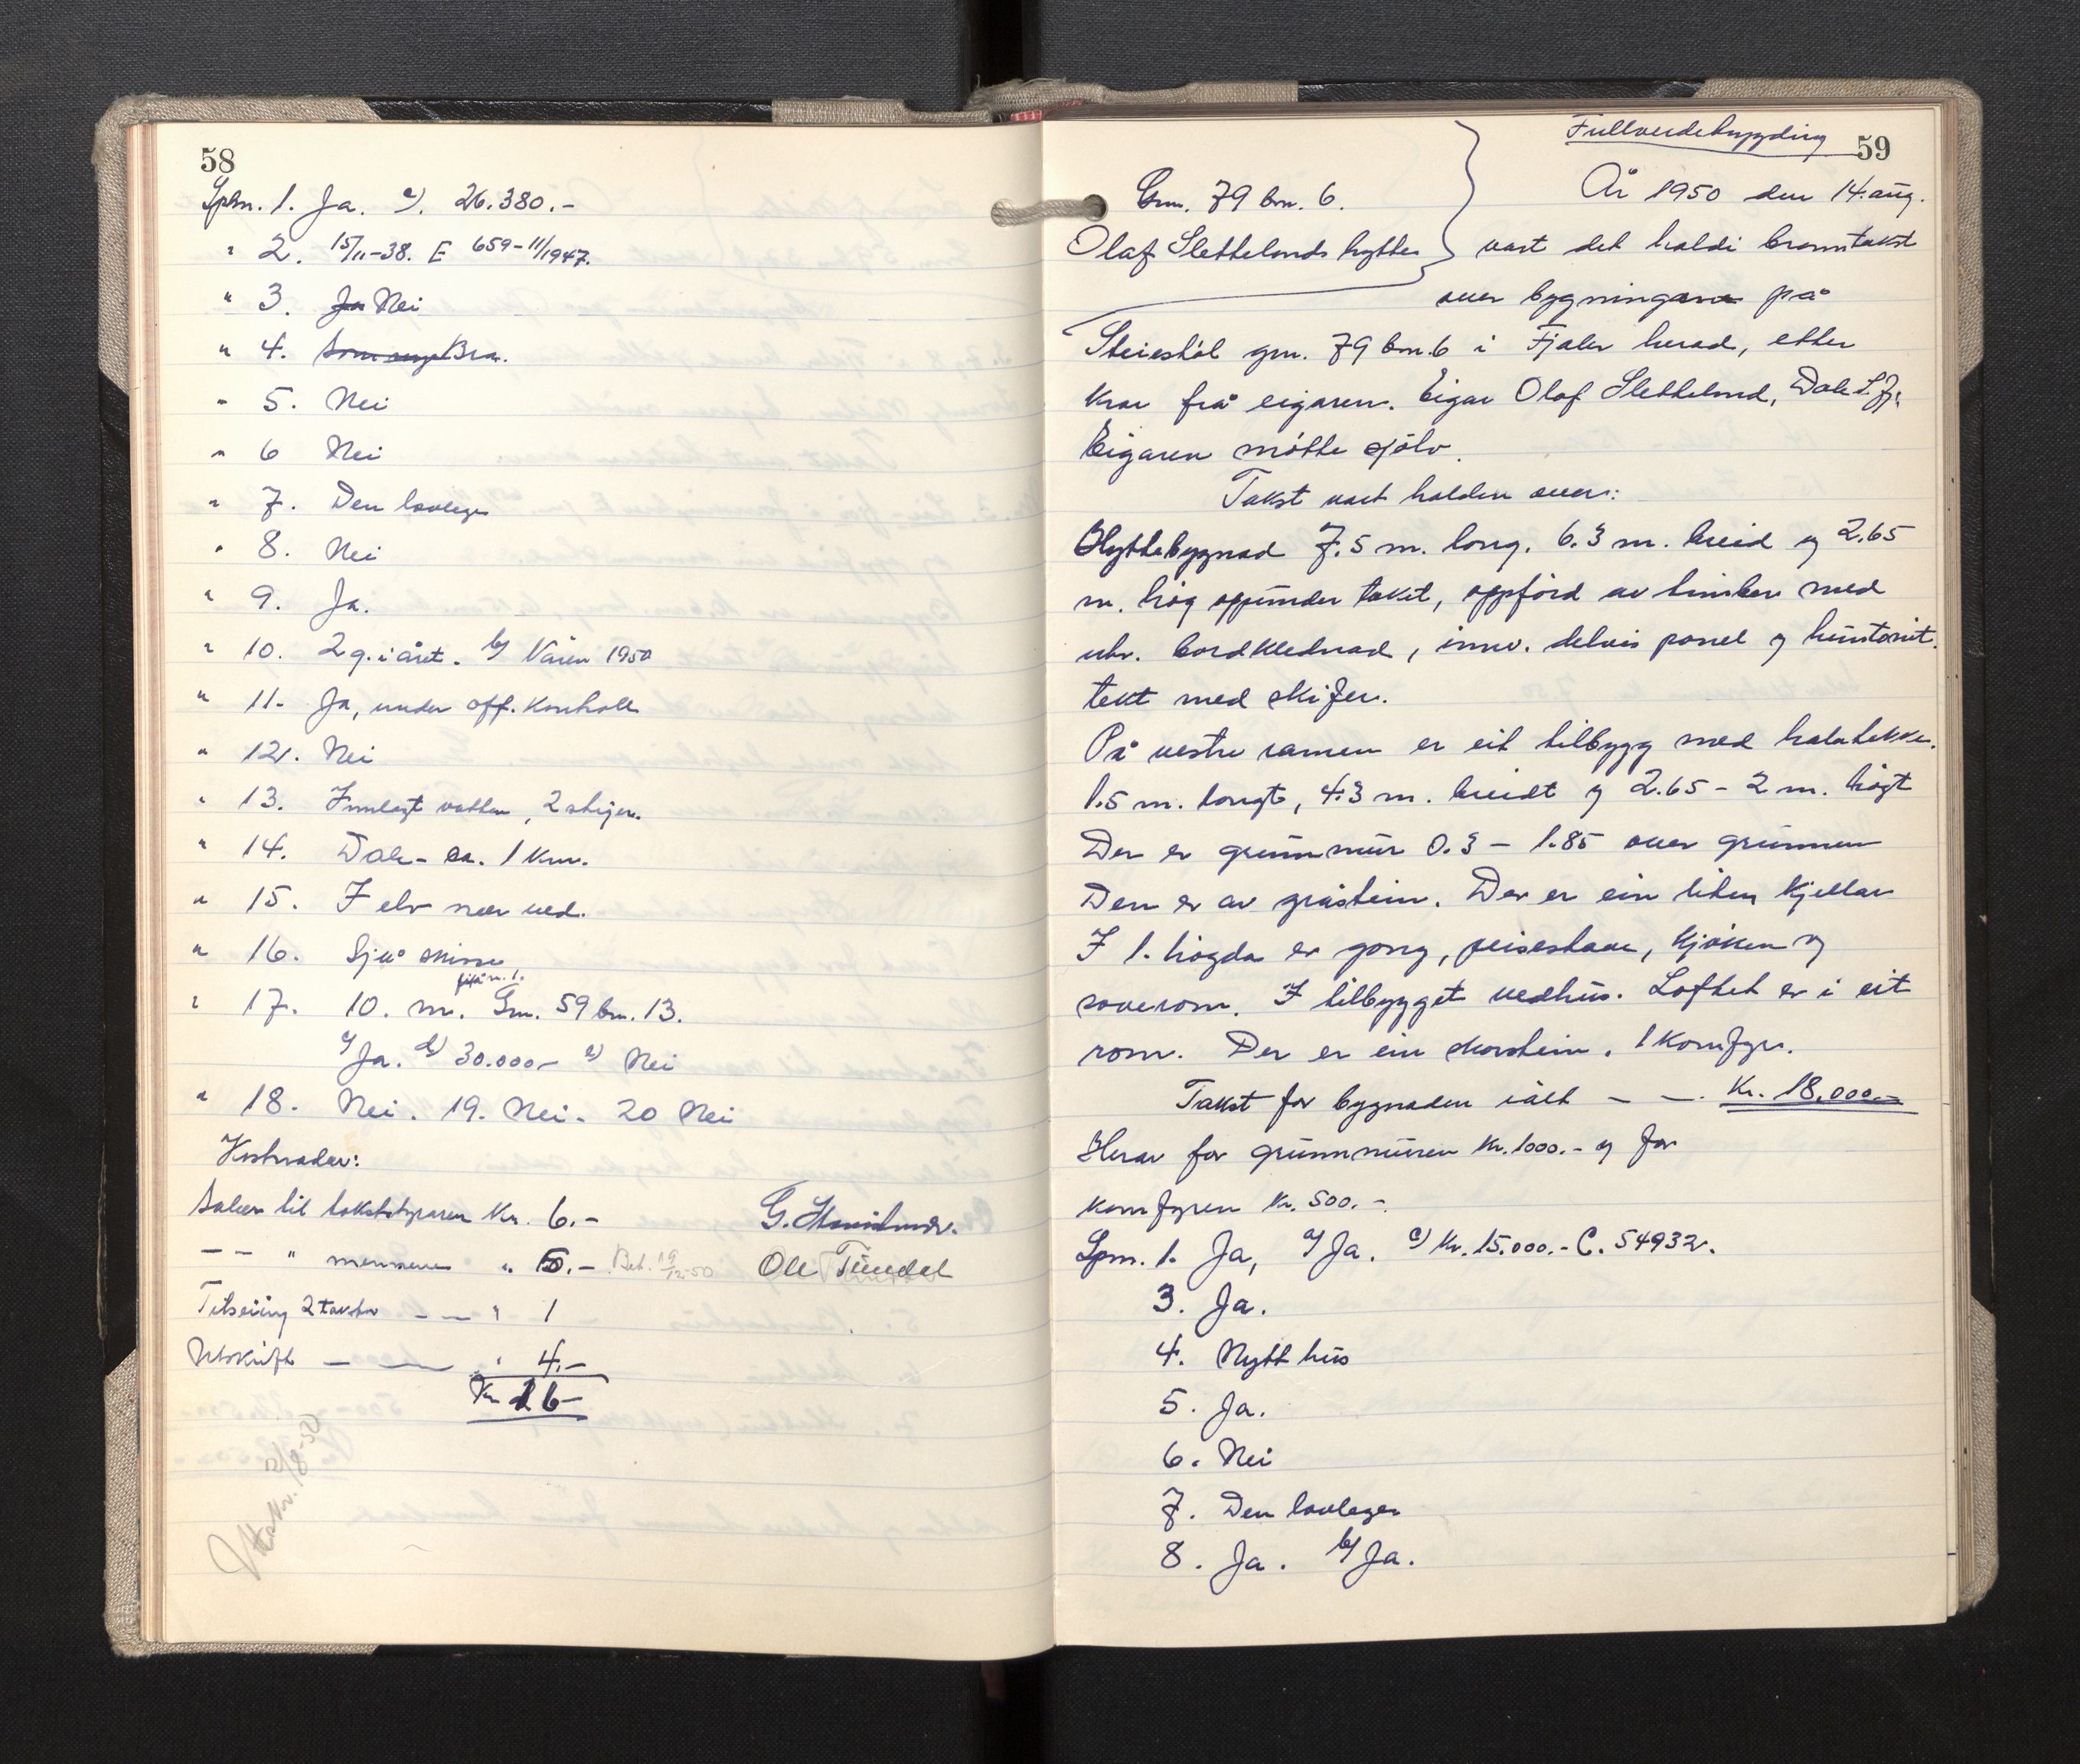 58
Spm. 1. Ja. c). 26.380.-
" 2. 15/11-38. E 659-11/1947.
" 3. Ja Nei
" 4. Som nye Bra.
" 5. Nei
" 6 Nei
" 7. Den lovlege
" 8. Nei
" 9. Ja.
" 10. 2 g. i året. b/ Våren 1950
" 11. Ja, under off. kontroll
" 12. Nei
" 13. Innlagt vatten, 2 stiger.
" 14. Dale - ca. 1 km.
" 15. I elv nær ved.
" 16. Sjå skisse
frå nr. 1.
" 17. 10. m. Gnr. 59 bnr. 13.
a/ Ja. b) 30.000- c) Nei
" 18. Nei. 19. Nei. 20 Nei
Kostnader:
Salær til takststyraren Kr. 6.- G. Hovidmær.
-- " mennene " 5.- Bet. 19/12-50 Ole Tundal
Tilseiing 2 takstm -- " 1
Utskrift -- " 4.-
Kr 16-
Utskr. 18-50
Fullverdebygding 59
Gnr. 79 bnr. 6.
Olaf Slettelands hytte
År 1950 den 14. aug.
vart det haldi branntakst
over bygningane på
Steiestøl gnr. 79 bnr. 6 i Fjaler herad, etter
krav frå eigaren. Eigar Olaf Sletteland, Dale S.Fj.
Eigaren møtte sjølv.
Takst vart halden over:
Hyttebygnad 7.5 m. long. 6.3 m. breid og 2.65
m. høg oppunder taket, oppførd av timber med
utv. bordklednad, innv. delvis panel og huntonit.
tekt med skifer.
På vestre ramen er eit tilbygg med halvtekkje.
1.5 m. longt, 4.3 m. breidt og 2.65 - 2 m. høgt
Der er grunnmur 0.3 - 1.85 over grunnen
Den er av gråstein. Der er ein liten kjellar
I 1. høgda er gong, peisestove, kjøken og
soverom. I tilbygget vedhus. Loftet er i eit
rom. Der er ein skorstein. 1 komfyr.
Takst for bygnaden ialt - -. Kr. 18.000.-
Herav for grunnmuren kr. 1000.- og for
komfyren kr. 500.-
Spm. 1. Ja, a/ Ja. c) Kr. 15.000.- C. 54932.
3. Ja.
4. Nytt hus
5. Ja.
6. Nei
7. Den lovlege
8. Ja. b/ Ja.